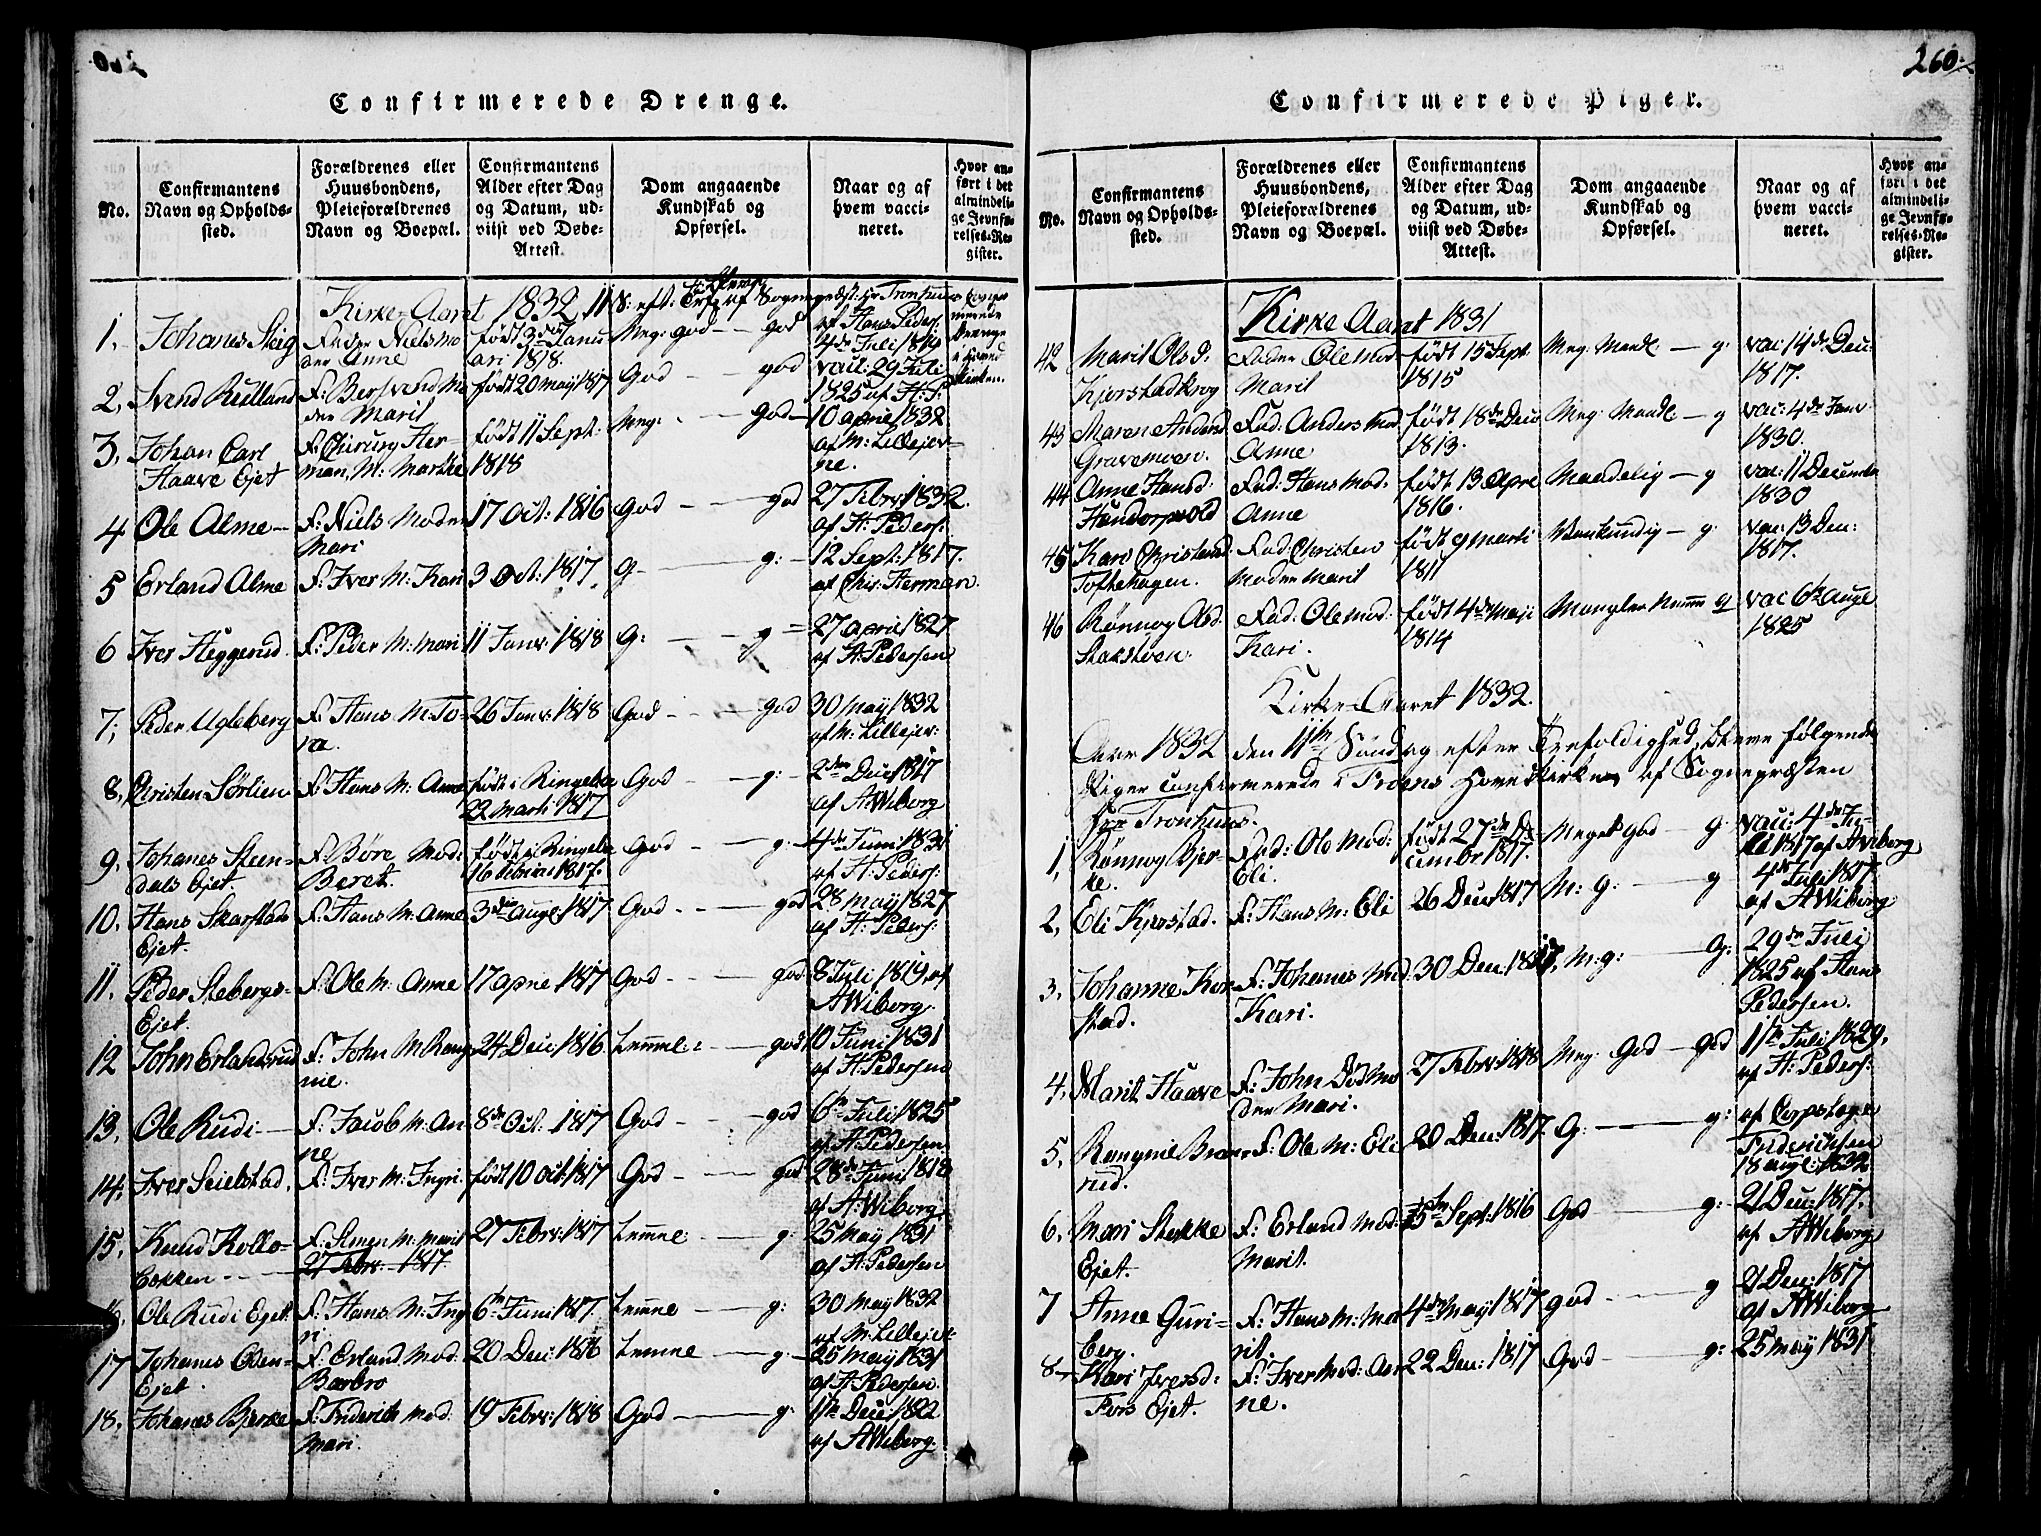 260.
Confirmerede Drenge.
No.
Confirmantens
Navn og Opholds-
sted.
Forældrenes eller
Huusbondens,
Pleieforældrenes
Navn og Boepæl.
Confirmantens
Alder efter Dag
og Datum, ud-
viist ved Døbe-
Attest.
Dom angaaende
Kundskab og
Opførsel.
Naar og af
hvem vacci-
neret.
Hvor an-
ført i det
almindeli-
ge Jevnfø-
relses-Re-
gister.
Kirke-Aaret 1832, 11 S: eft:
1. Johanes Steig
Fader Niels Mo
der Anne
født 3die Janu
ari 1818.
Meg: god — god
af Hans Peders.
4de Juli 1819
2. Svend Rudland
F: Bersvend Mo
der Marit
født 20 May 1817
God — god
vacc: 29 Juli
1825 af H: P:
3. Johan Carl
Haave Ejet
F: Chirurg Her-
man, M: Marthe
født 11 Sept:
1818
Meg: — God
10 April 1832
af M: Lillejer-
ne.
4 Ole Alme
F: Niels Moder
Mari
17 Oct: 1816
God — god
27 Febr: 1832.
af H: Peders:
5 Erland Alme
F: Iver M: Kari
3 Oct: 1817
G. — g:
12 Sept: 1817.
af Chir: Herman.
6 Iver Heggerud.
F: Peder M: Mari
11 Janr: 1818
G: — g
27 April 1827
af H: Pedersen
7; Peder Ugleberg
F: Hans M: To-
ra.
26 Janr: 1818
God — god
30 May 1832
af M: Lillejer:
8. Christen Sørlien
F: Hans M: Anne
født i Ringeboe
22 Marti 1817
God — g:
2den Dec: 1817
af A Wiborg
9. Johanes Steen-
dals Ejet.
F: Børe Mod:
Beret.
født i Ringeboe
16 Februari 1817.
God — g.
4de Juni 1831
af H: Peders:
10. Hans Skarstad
Ejet.
F: Hans M: Anne
3die Augl: 1817
God — god
28 May 1827
af H: Peders:
11. Peder Stebergs-
Ejet.
F: Ole M: Anne
17 April 1817
God — god
8 Juli 1819, af
A Wiborg.
12 John Erlandsrud
F: John M: Rang-
nie.
24 Dec: 1816.
Temmel: — god
10 Juni 1831
af H: Pedersen
13. Ole Rudi
F: Jacob M: An
ne
8de Oct. 1817
God — god
6te Juli 1825
af H: Pedersen
14. Iver Seielstad.
F: Iver M: Ingri.
født 10 Oct: 1817
God — god
28de Juni 1818
af A: Wiborg
15. Knud Kollo-
bokken
F: Simen M: Marit
27 Febr: 1817
27 Febr: 1817
Temme: — g:
25 May 1831
af H: Pedersen
16. Ole Rudi Ejet.
F: Hans M: Ing
ri.
6te Juni 1817.
Temme — g:
30 May 1832
af M: Lillejer:
17 Johanes Oden-
Ejet.
F: Erland Mod:
Barbro
20 Dec: 1816
Temme — g.
25 May 1831
af H: Pedersen.
18. Johanes Bjerke
F: Friderich Mod:
Mari.
19 Febr: 1818
God — g:
11te Dec: 1822
af A Wiborg.
Confirmerede Piger.
No.
Confirmantens
Navn og Opholds-
sted.
Forældrenes eller
Huusbondens,
Pleieforældrenes
Navn og Boepæl.
Confirmantens
Alder efter Dag
og Datum, ud-
viist ved Døbe-
Attest.
Dom angaaende
Kundskab og
Opførsel.
Naar og af
hvem vacci-
neret.
Hvor an-
ført i det
almindeli-
ge Jevnfø-
relses-Re-
gister.
Kirke Aaret 1831
42 Marit Olsd.
Kjorstadkrog
Fader Ole Mod
Marit
født 15 Sept.
1815
Meg: Maadl: — g:
vac: 14de Dec:
1817.
43 Maren Andersd
Gravemoen.
Fad: Anders Mod
Anne
født 18de Dec
1813.
Meg: Maadl: — g
vac: 4de Janr
1830.
44 Anne Hansd:
Hundorpvold
Fad: Hans Mod.
Anne
født 13 April
1816.
Maadelig — g
vac: 11 Decembr
1830
45 Kari Christend
Toftehagen.
Fad: Christen
Moder Marit
født 9 Marti
1811
Vankundig — g:
vac: 13 Dec:
1817.
46 Rønnog Olsd.
Stakstoen.
Fad: Ole Mod:
Kari.
født 4de Maji
1814
Mangler Nemme g
vac 6te Augl
1825
Kirke-Aaret 1832.
Aar 1832 den 11te Søndag efter Trefoldighed, bleve følgende
Piger confirmerede i Froens Hovedkirke, af Sognepræsten
Hr: Tronhuus.
1, Rønnog Bjer-
ke.
Fad: Ole Mod:
Eli.
født 27de De
cembr 1817.
Meget God — g
vacc: 4de Ju-
li 1817 af A Wiborg
2, Eli Kjorstad.
F: Hans M: Eli
26 Decr 1817
M: g: — g
4de Juli 1817
af A Wiborg
3. Johanne Kor-
stad.
F: Johanes Mod.
Kari.
30 Dec: 1817,
M: g: — g:
29de Juli
1825 af Hans
Pedersen.
4. Marit Haave
F: John Død Mo
der Mari.
27 Febr: 1818
Meg: God — God
11te Juli 1829,
af H: Peders:
5. Rangnie Brand-
rud.
F: Ole M: Eli
20 Dec: 1817
G: — g:
af Corpslæge
Friderichsen
18 Augl: 1832
6. Mari Stokke
Ejet.
F: Erland Mod:
Marit.
15de Sept: 1816
God — g:
21 Dec: 1817.
af A Wiborg
7 Anne Guri-
berg.
F: Hans M: Ma
rit.
4de May 1817
god — g
21 Dec: 1817
af A Wiborg
8 Kari Iversd:
Fors Ejet.
F: Iver Mod: An
ne.
22 Dec: 1817
God — g:
25 May 1831